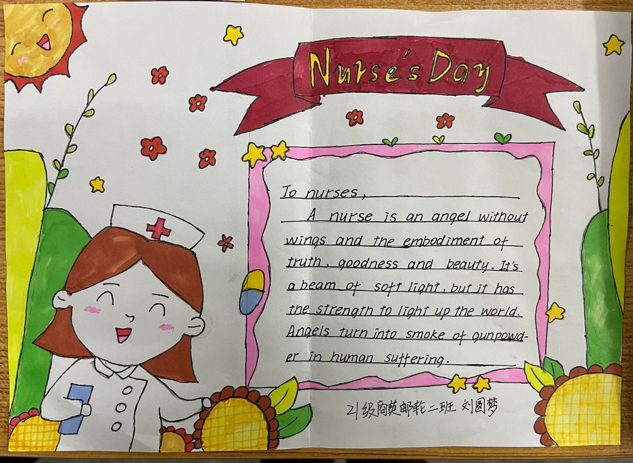 Nurse's Day
To nurses,
A nurse is an angel without
wings and the embodiment of
truth, goodness and beauty. It's
a beam of soft light, but it has
the strength to light up the world.
Angels turn into smoke of gunpowd-
er in human suffering.
21级商英邮轮二班 刘圆梦